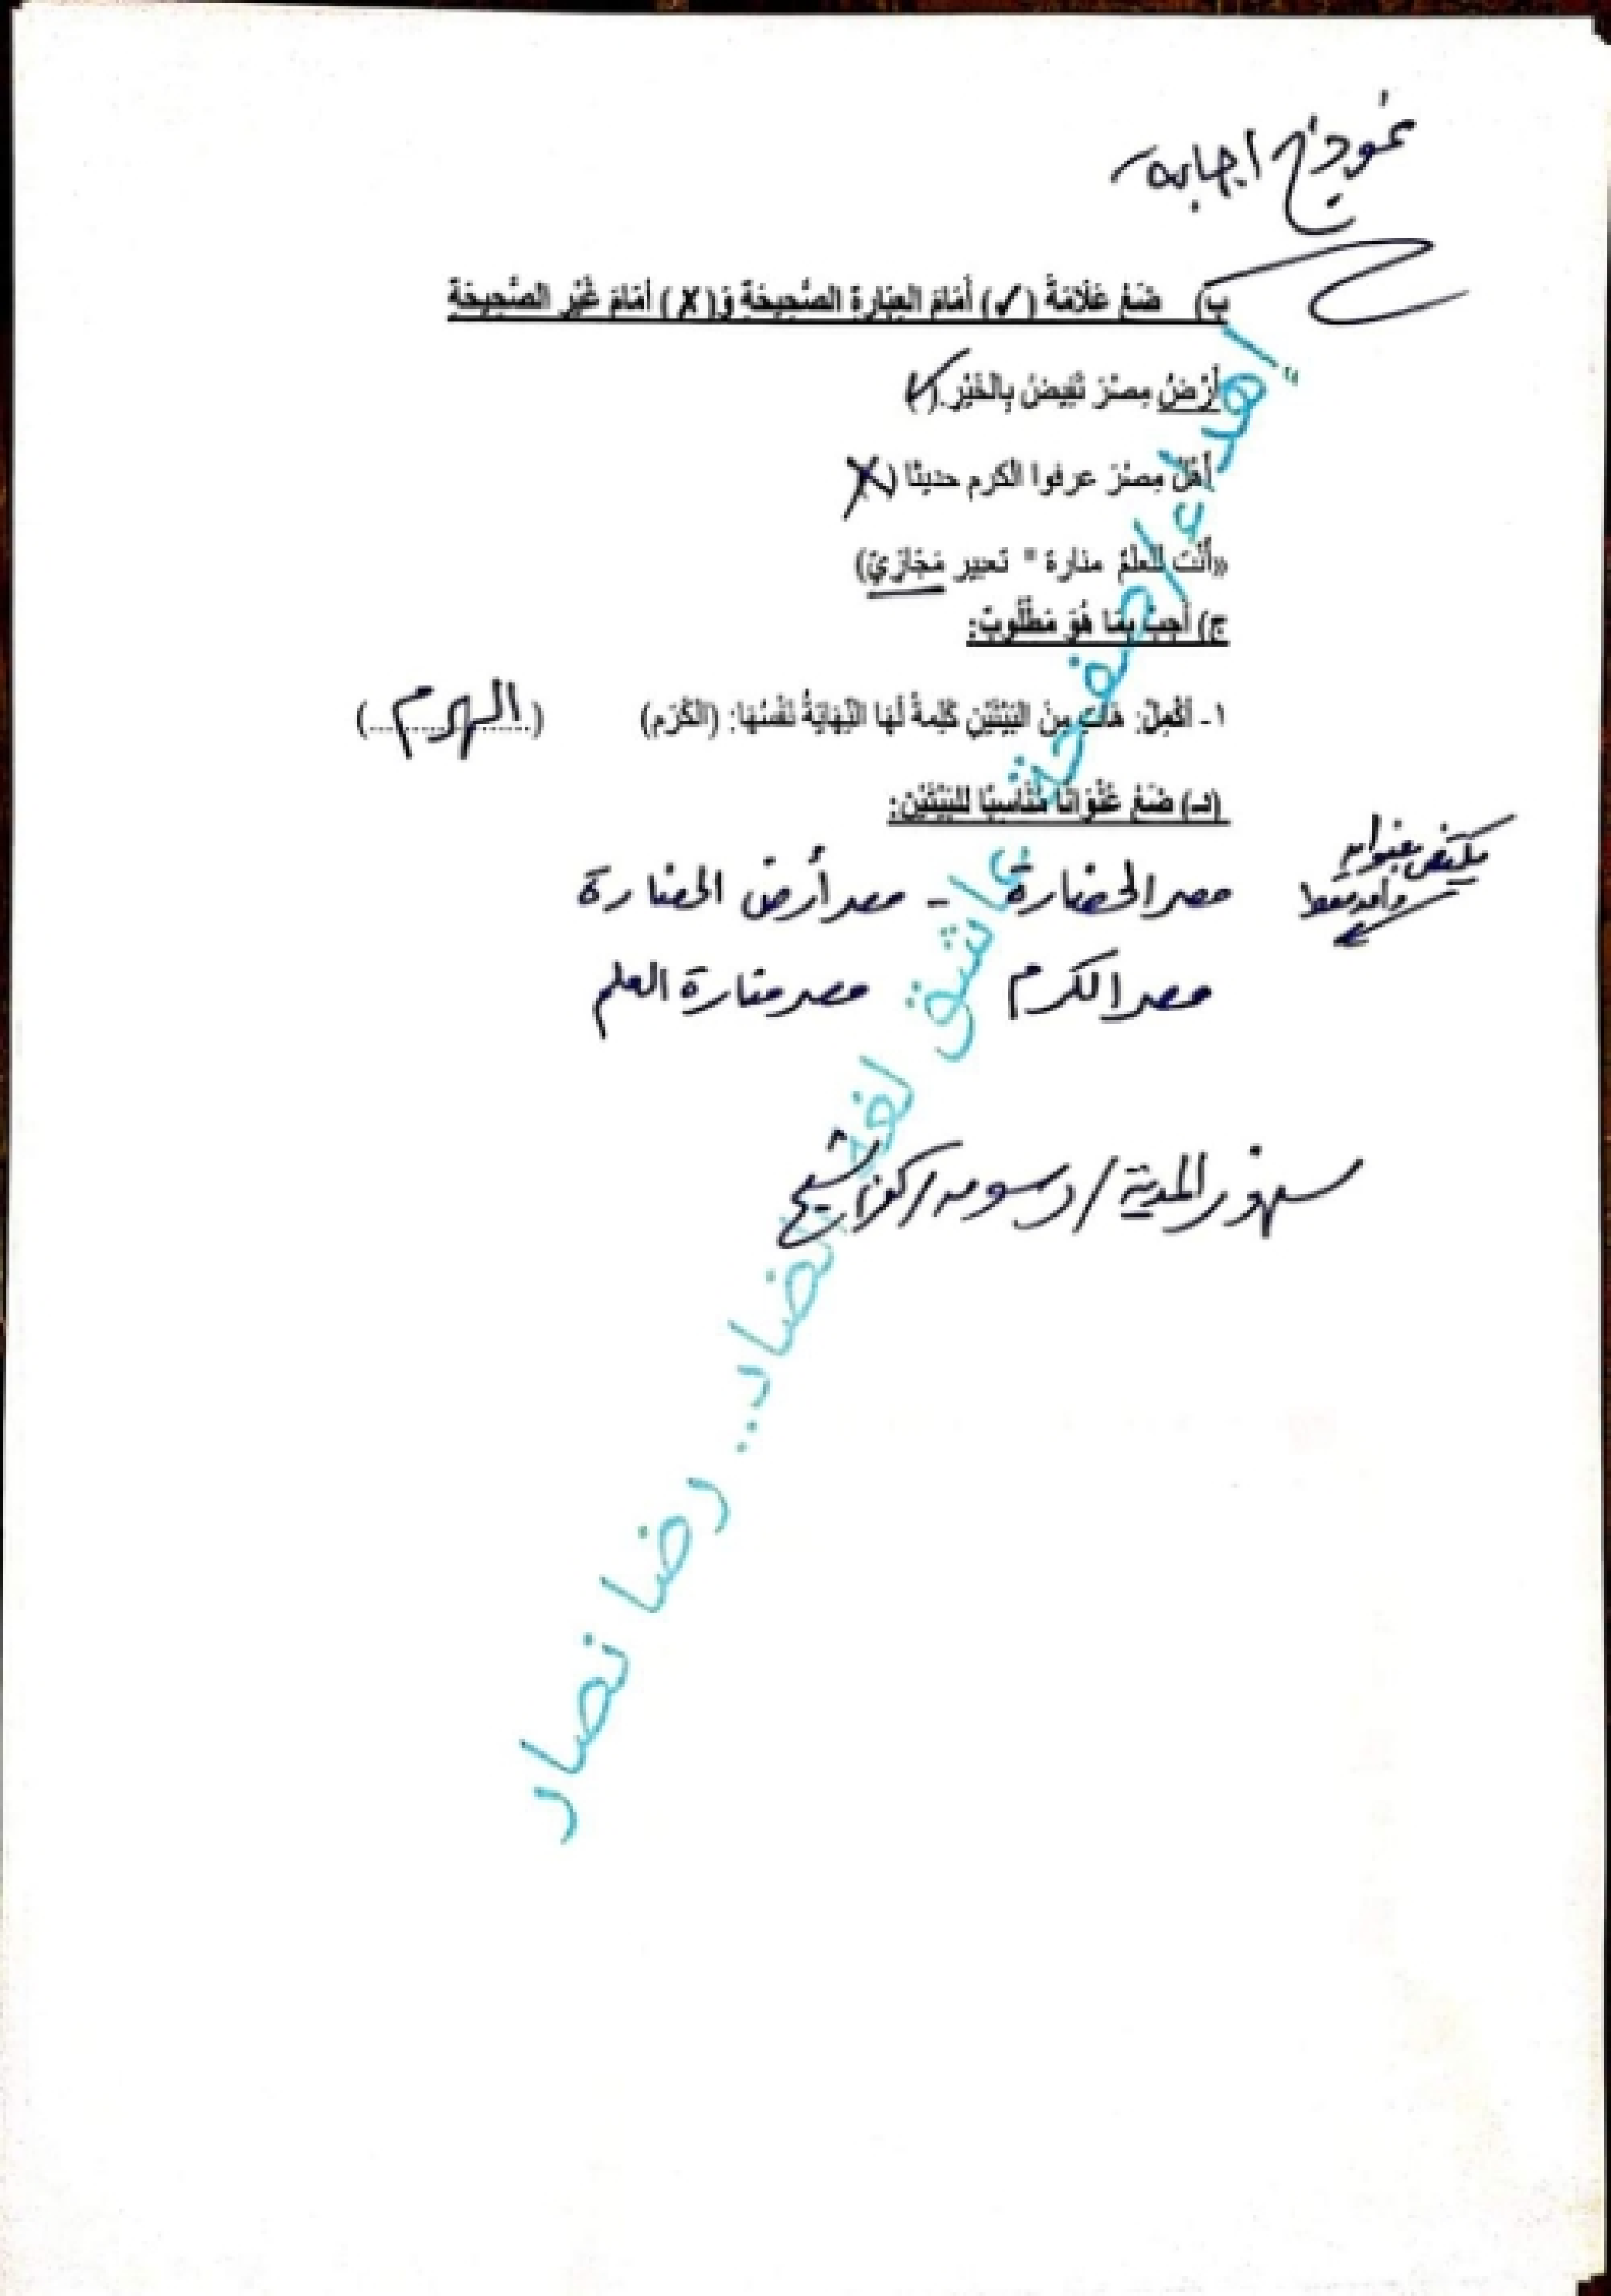 نموذج اجابة
ب) ضَعْ عَلَامَةَ (✓) أَمَامَ العِبَارةِ الصَّحِيحَةِ وَ(✗) أمَامَ غَيْرِ الصَّحِيحَةِ
أَرْضُ مِصْرَ تَفِيضُ بِالخَيْرِ.(✓)
أَهْلُ مِصْرَ عرفوا الكرم حديثًا (✗)
«أَنْتِ لِلعلمِ منارة " تعبير مَجَازِيّ)
ج) أَجِبْ بِمَا هُوَ مَطْلُوبٌ:
١- أَكْمِلْ: هَاتِ مِنَ البَيْتَيْنِ كَلِمةً لَهَا النِّهَايَةُ نَفْسُهَا: (الكَرَم) (الهرم)
(د) ضَعْ عُنْوَانًا مُنَاسِبًا للبَيْتَيْنِ:
يكتفى بعنوان
واحد فقط
مصر الحضارة - مصر أرض الحضارة
مصر الكرم مصر منارة العلم
إهداء لصفحة عاشق لغة الضاد.. رضا نصار